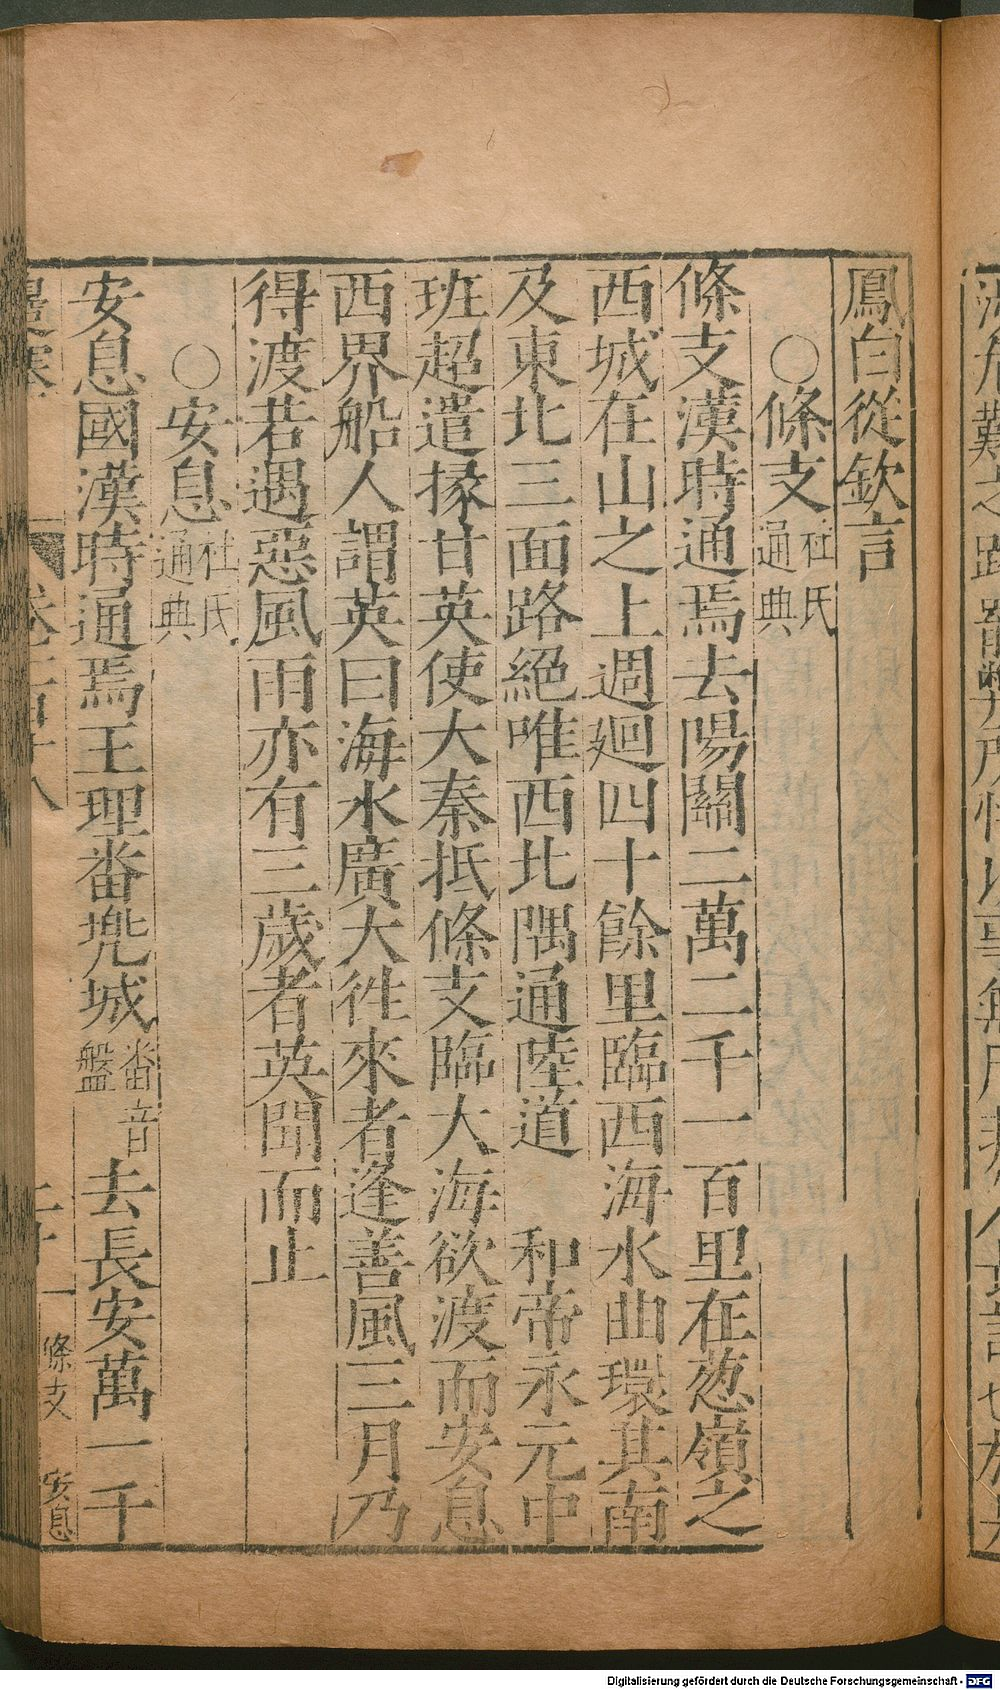 鳳白從欽言
○條支杜氏通典
條支漢時通焉去陽關二萬二千一百里在葱嶺之
西城在山之上週廻四十餘里臨西海水曲環其南
及東北三面路絕唯西北隅通陸道　和帝永元中
班超遣掾甘英使大秦抵條支臨大海欲渡而安息
西界船人謂英曰海水廣大徃來者逢善風三月乃
得渡若遇惡風雨亦有三歲者英聞而止
○安息杜氏通典
安息國漢時通焉王理番兠城番音盤去長安萬一千
邊塞
條支　安息
Digitalisierung gefördert durch die Deutsche Forschungsgemeinschaft - DFG